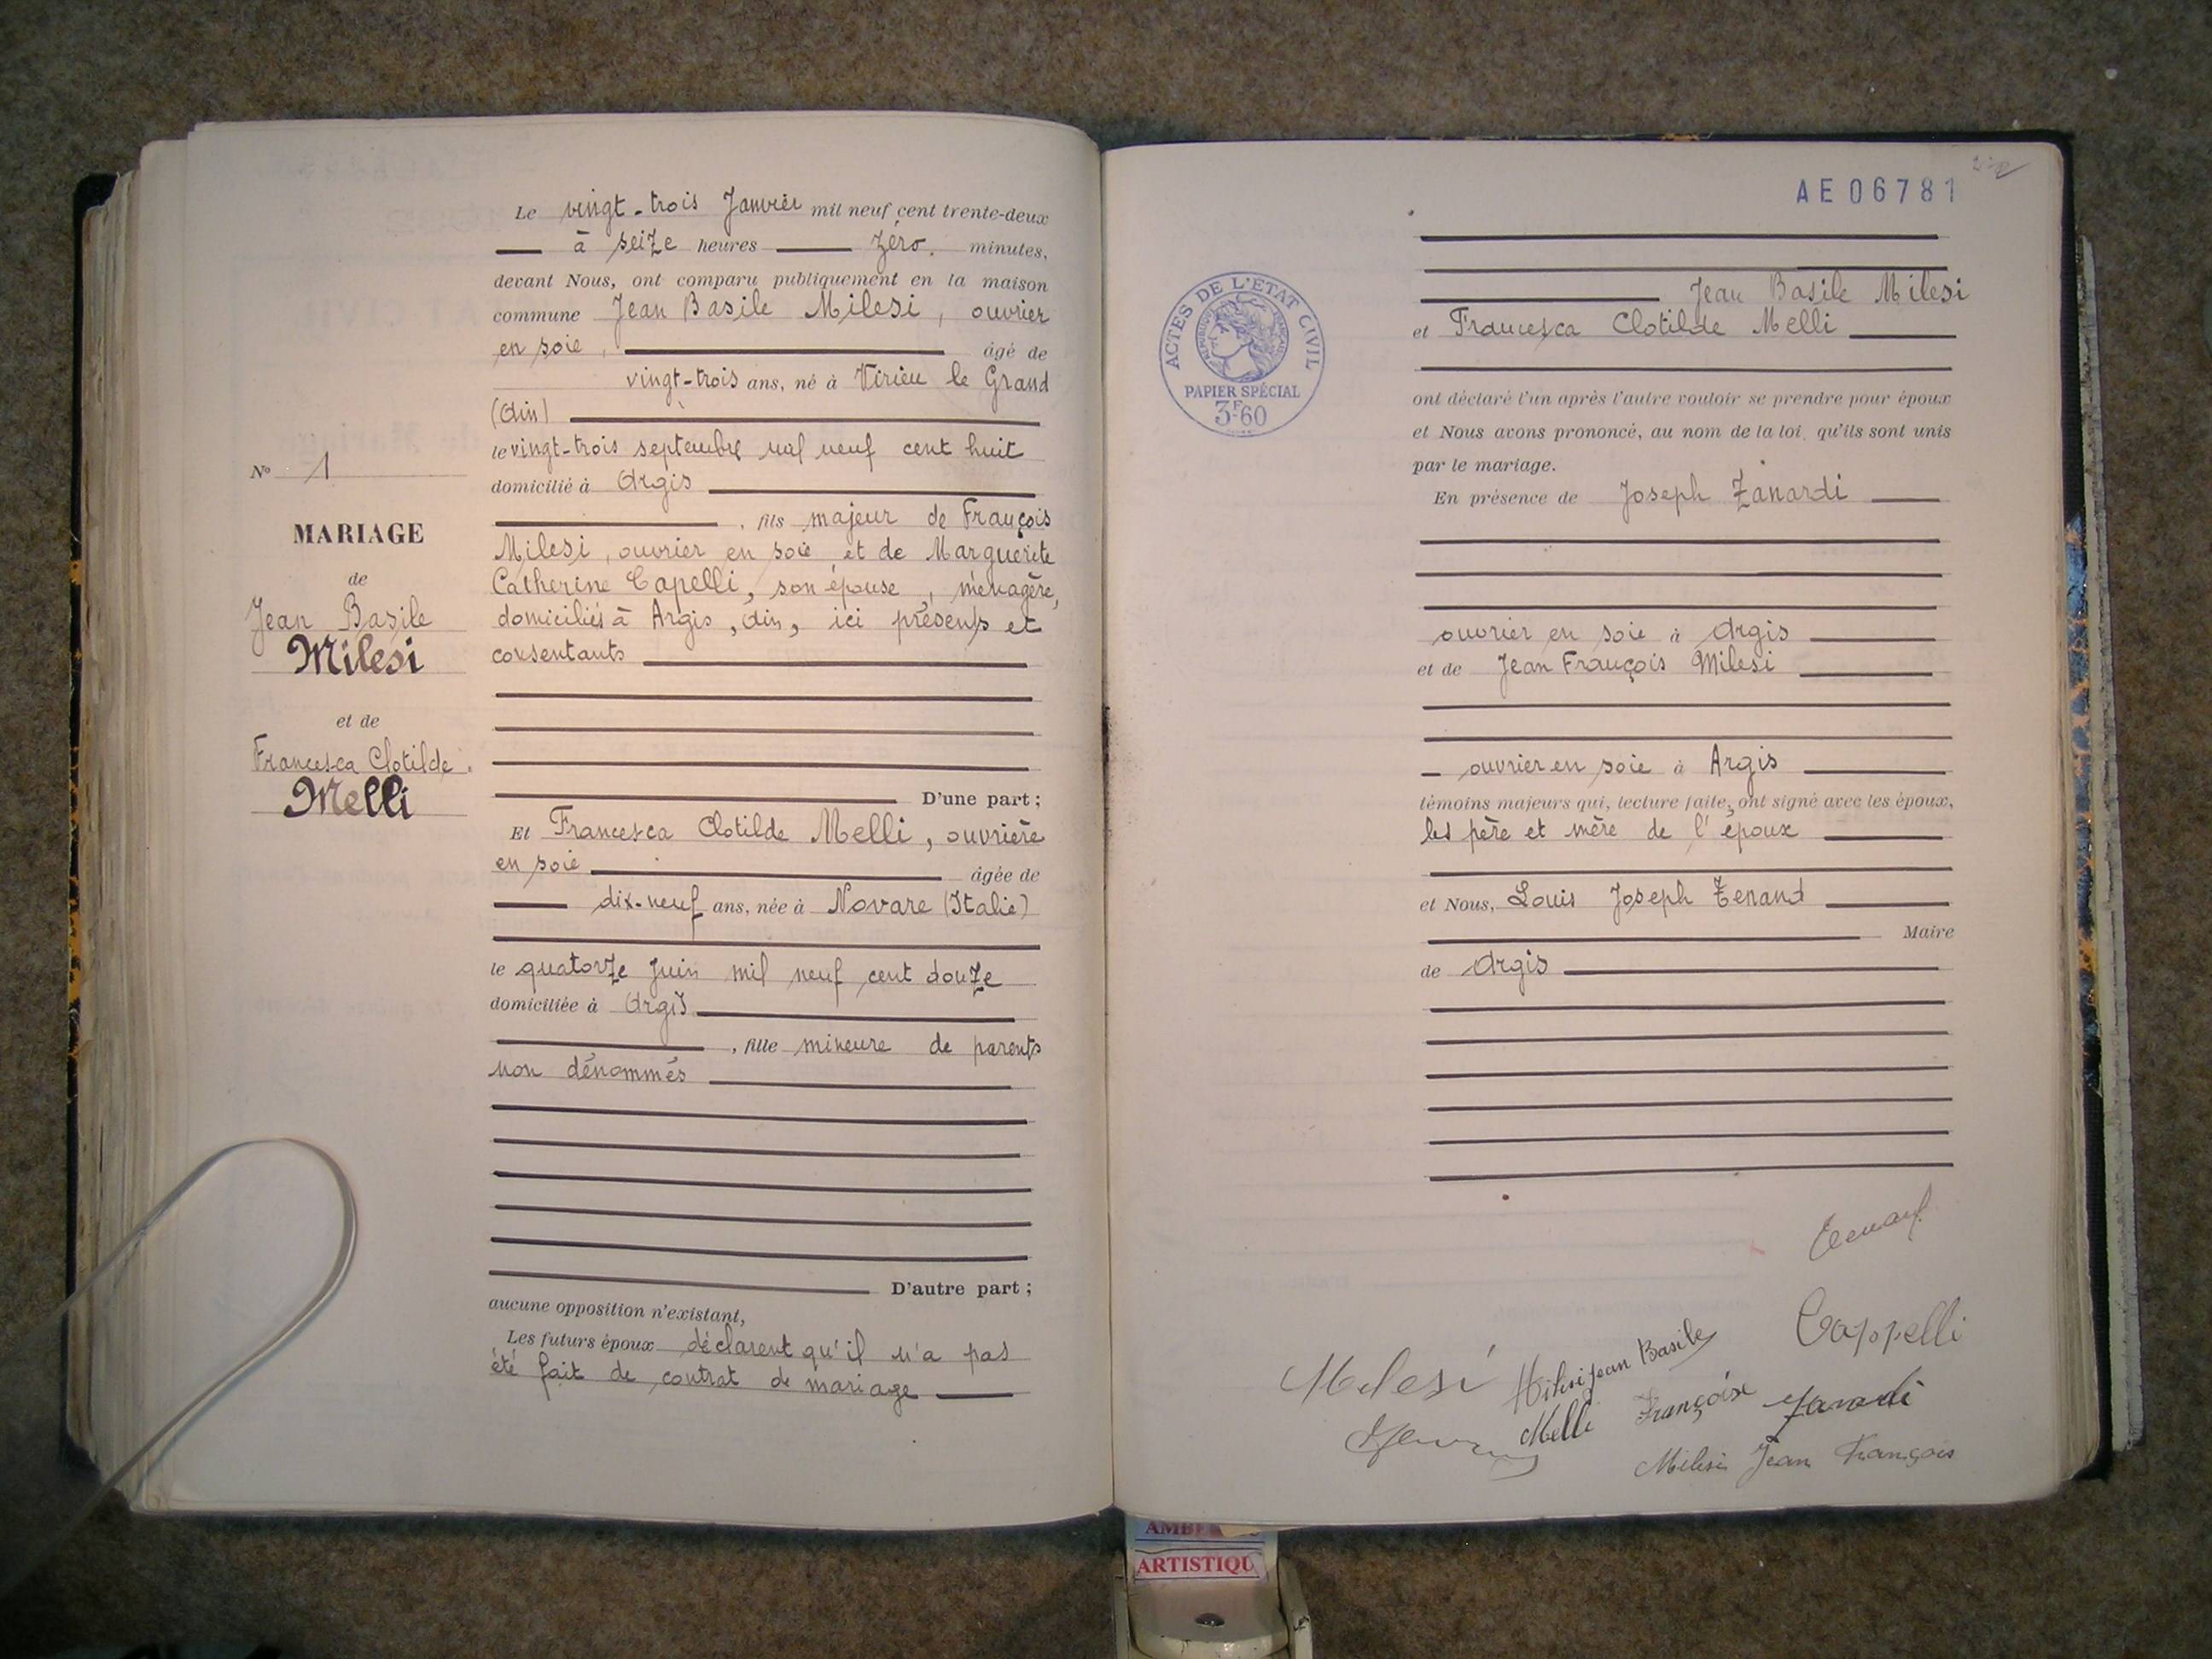 N° 1
MARIAGE
de
Jean Basile
Milesi
et de
Francesca Clotilde
Melli
Le vingt-trois Janvier mil neuf cent trente-deux
à seize heures zéro. minutes,
devant Nous, ont comparu publiquement en la maison
commune Jean Basile Milesi, ouvrier
en soie, âgé de
vingt-trois ans, né à Virieu le Grand
(Ain)
le vingt-trois septembre mil neuf cent huit
domicilié à Argis
, fils majeur de François
Milesi, ouvrier en soie et de Marguerite
Catherine Capelli, son épouse, ménagère,
domiciliés à Argis, Ain, ici présents et
consentants
D'une part;
Et Francesca Clotilde Melli, ouvrière
en soie âgée de
dix-neuf ans, née à Novare (Italie)
le quatorze Juin mil neuf cent douze
domiciliée à Argis
, fille mineure de parents
non dénommés
D'autre part;
aucune opposition n'existant,
Les futurs époux déclarent qu'il n'a pas
été fait de contrat de mariage
AE 06781
ACTES DE L'ÉTAT CIVIL
RÉPUBLIQUE FRANÇAISE
PAPIER SPÉCIAL
3F60
Jean Basile Milesi
et Francesca Clotilde Melli
ont déclaré l'un après l'autre vouloir se prendre pour époux
et Nous avons prononcé, au nom de la loi, qu'ils sont unis
par le mariage.
En présence de Joseph Zanardi
ouvrier en soie à Argis
et de Jean François Milesi
ouvrier en soie à Argis
témoins majeurs qui, lecture faite, ont signé avec les époux,
les père et mère de l'époux
et Nous, Louis Joseph Tenand
Maire
de Argis
Tenand
Cappelli
Milesi Milesi Jean Basile
Melli Françoise Zanardi
Milesi Jean François
ARTISTIQU